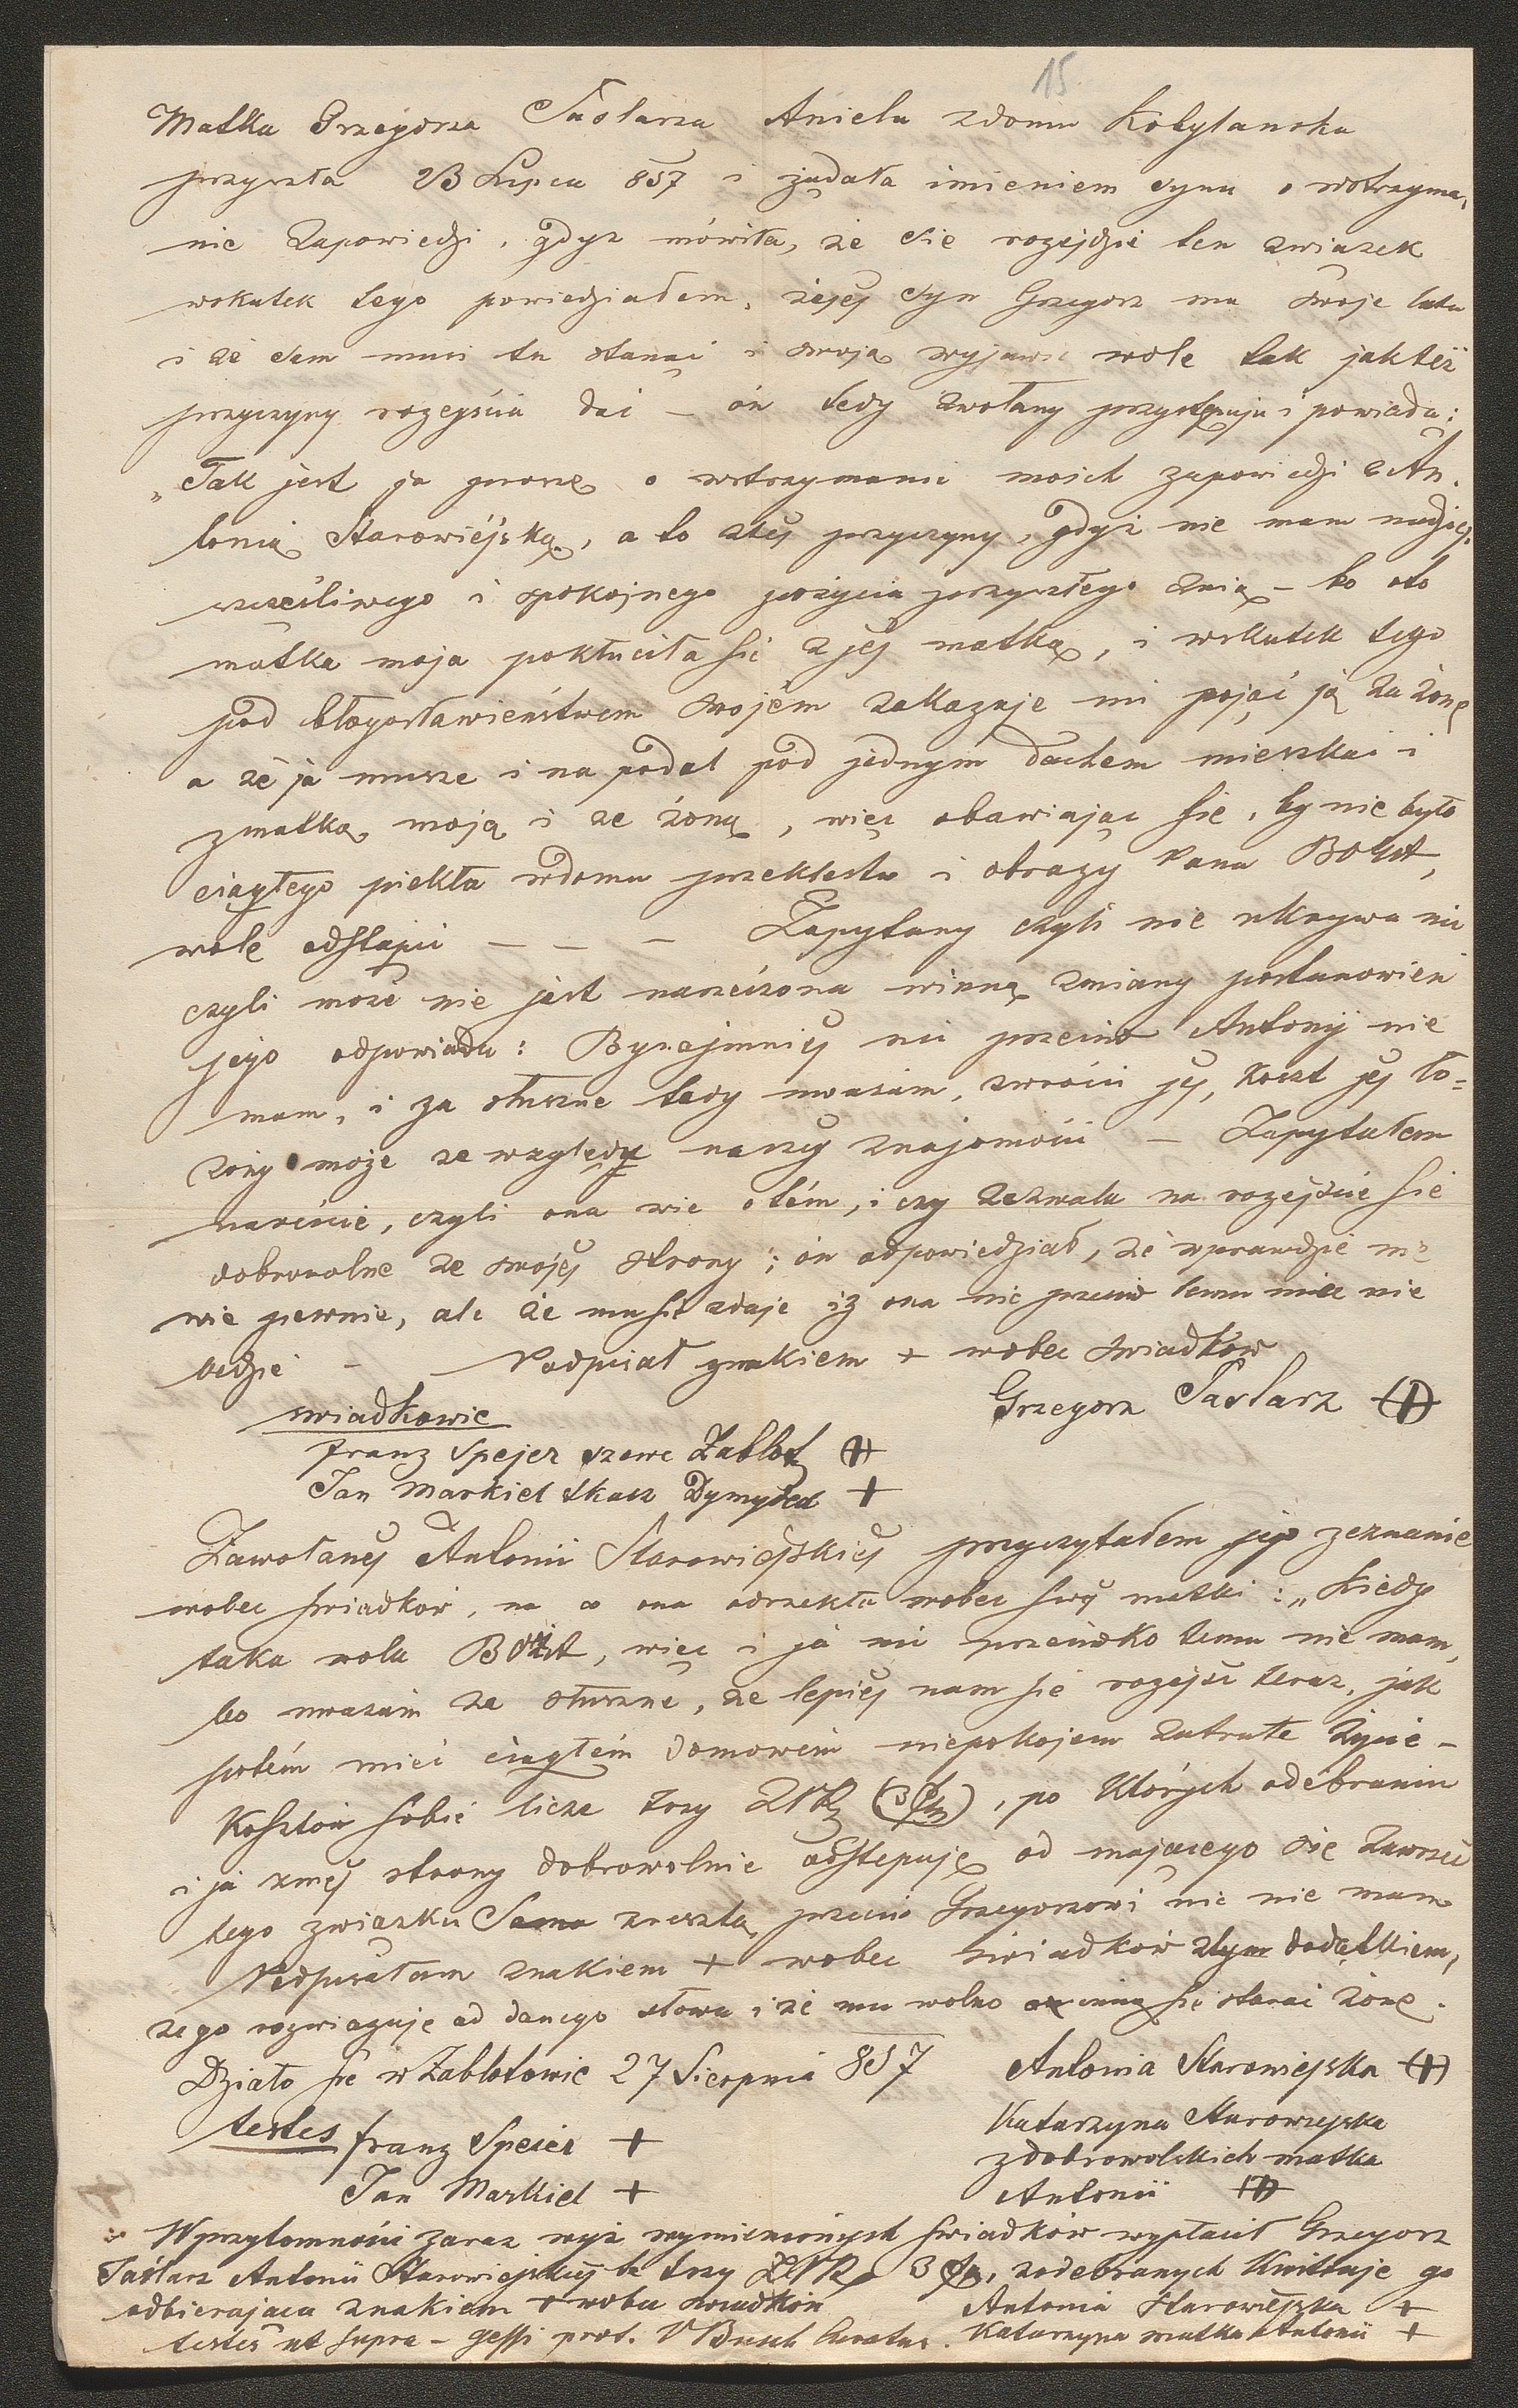 15.
Matka Grzegorza Taślarza Aniela zdomu Kobylanska
przyszła 23 Lipca 857 i żądała imieniem syna o wstrzyma„
nie Zapowiedzi, gdyz mówiła, że się rozejdzie ten związek
wskutek tego powiedziałem, żejej syn Grzegorz ma swoje lata
i że sam musi tu stanąć i swoją wyjawić wole tak jakteż
przyczyny rozejścia dać – ón tedy zwołany przystępuje i powiada:
„Tak jest ja proszę o wstrzymanie moich zapowiedzi zAn„
tonią Starowiéjską, a to ztéj przyczyny, gdyż nie mam nadziej
szczęśliwego i spokojnego pożycia przyszłego znią – bo oto
matka moja pokłuciła się z jéj matką, i wskutek tego
pod błogosławieństwem swojém zakazuje mi pojąć ją za żonę
a że ja musze i na podal pod jednym dachem mieszkać i
zmatką moją i ze żoną, więc obawiając się, by nie było
ciągłego piekła wdomu przeklestw i obrazy Pana BOGA,
wole odstąpić – – – Zapytany czyli nie ukrywa nic
czyli może nie jest narzeczona winną zmiany postanowień
jego odpowiada: Bynajmniéj nic przeciw Antonij nie
mam, i za słuszne tedy uważam, zwrócić jéj, koszt jéj ło=
żony może ze względy naszéj znajomości – Zapytałem
nareście, czyli ona wie otém, i czy zezwala na rozejście się
dobrowolne ze swojéj strony; ón odpowiedział, że wprawdzie nie
wie pewnie, ale że musię zdaje iż ona nic przeciw temu mieć nie
bedzie – Podpisał znakiem + wobec swiadków
swiadkowie Grzegorz Taslarz (+)
franz Spejer szewc Zablot (+)
Jan Markiel tkacz +
Zawołanéj Antonii Starowiejskiéj przyczytałem jego zeznanie
wobec swiadków, na co ona odrzekła wobec swéj matki: „Kiedy
taka wola BOŻA, więc i já nic przeciwko temu nie mam,
bo uważam za słuszne, że lepiéj nam się rozejść teraz, jak
potém mieć ciągłém domowém niepokojem zatrute życie –
Kosztów sobie licze trzy ZNR (3), po których odebraniu
i já zméj strony dobrowolnie odstępuję od mającego się zawrzeć
tego związku zresztą przeciw Grzegorzowi nic nie mam
Podpisałam znakiem + wobec świadków ztym dodatkiem,
że go rozwiązuje od danego słowa i że mu wolno o inną się starać żonę.
Działo się w Zablotowie 27 Sierpnia 857 Antonia Starowiejska (+)
testes franz Speier + Katarzyna Starowiejska
Jan Markiel + zdobrowolskich matka
Antonii (+)
Wprzytomności zaraz wyż wymienionych swiadków wypłacił Grzegorz
Taślarz Antonii Starowiejskiéj te trzy ZNR 3, zodebranych kwittuje go
odbierająca znakiem + wobec swiadków Antonia Starowiéjska +
testes ut supra – gessi prot. V Busch Curatus. Katarzyna matka Antonii +